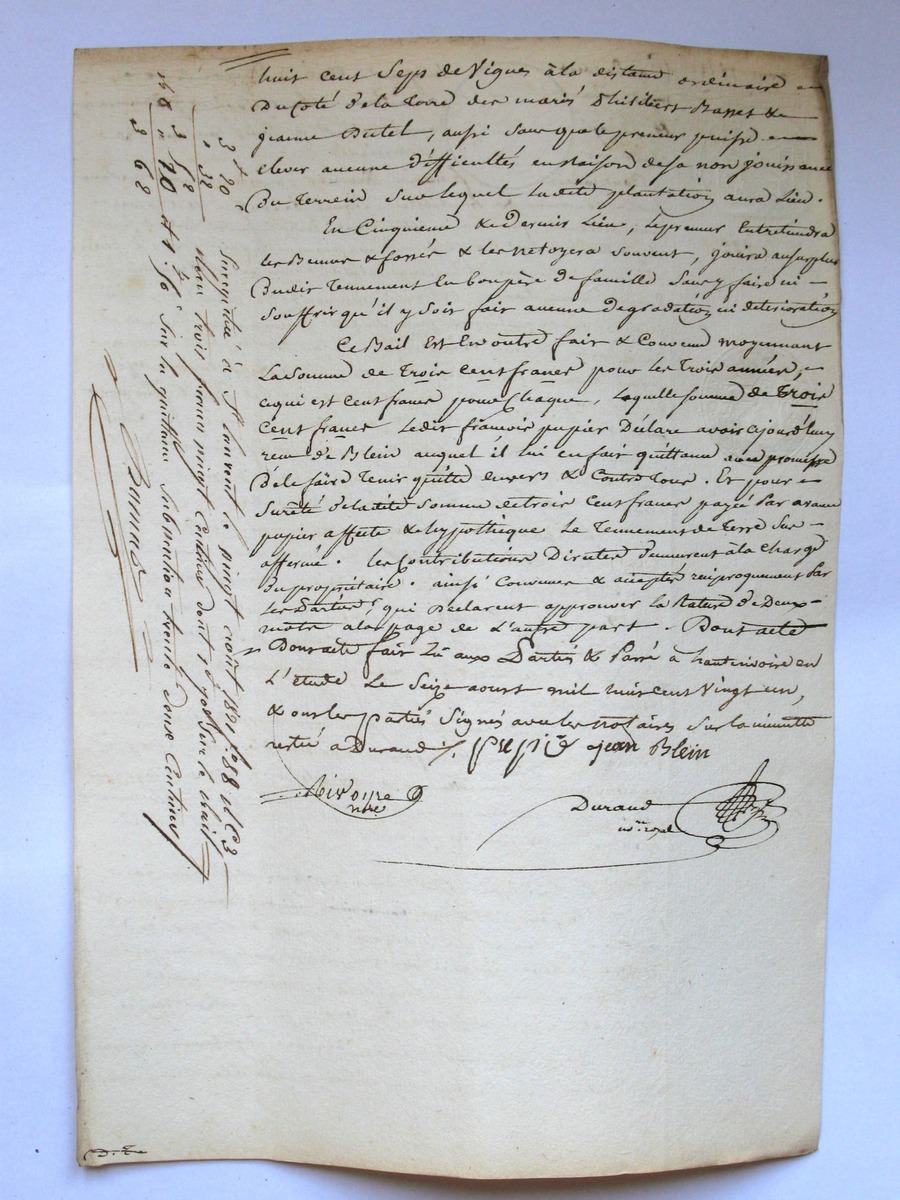 huit cent Seps de Vignes à la distance ordinaire
Du Coté de la Terre des mariés Basset &
jeanne , aussi Sans que le preneur puisse
Elever aucune difficultés en Raison de sa non jouissance
Du Terrein Sur lequel Ladite plantation aura Lieu.
En Cinquieme & Dernier Lieu, le preneur Entretiendra
les & fossés & les netoyera Souvent, jouira au surplus
Dudit Tennement En bon père de famille Sans y faire ni
Souffrir qu'il y Soit fait aucune Degradation ni deterioration
Ce Bail Est En outre fait & Convenu moyennant
La Somme de Trois Cent francs pour les Trois années,
ce qui est Cent francs pour Chaque, Laquelle Somme de Trois
Cent francs ledit françois pupier Déclare avoir ajourd'huy
recu de Blein auquel il lui en fait quittance avec promesse
De le faire Tenir quitte envers & Contre Tous. Et pour
Sureté de ladite Somme de trois Cent francs payée Par avance
pupier affecte & hypothèque Le Tennement de Terre Sus
affermé. les Contributions Directes demeurent à la charge
Du propriétaire. ainsi Convenu & accepté reciproquement Par
Les Parties, qui Declarent approuver la Rature de Deux
mots a la page de L'autre part. Dont acte
Dont acte fait Lu aux Parties & Passé à hauterivoire en
L'étude Le Seize aoust mil huit cent Vingt un,
& ont les parties Signés avec les notaires Sur la minutte
restée a Durand ./. pupié jean Blein
Rivoyre
nore
Durand
nre royal
3 f 20
" 32
3 52
Enregistré à St Laurent le vingt aout 1821 fo 88
trois francs vingt Centimes dont 10e
Sur la quittance Subvention trente Centimes